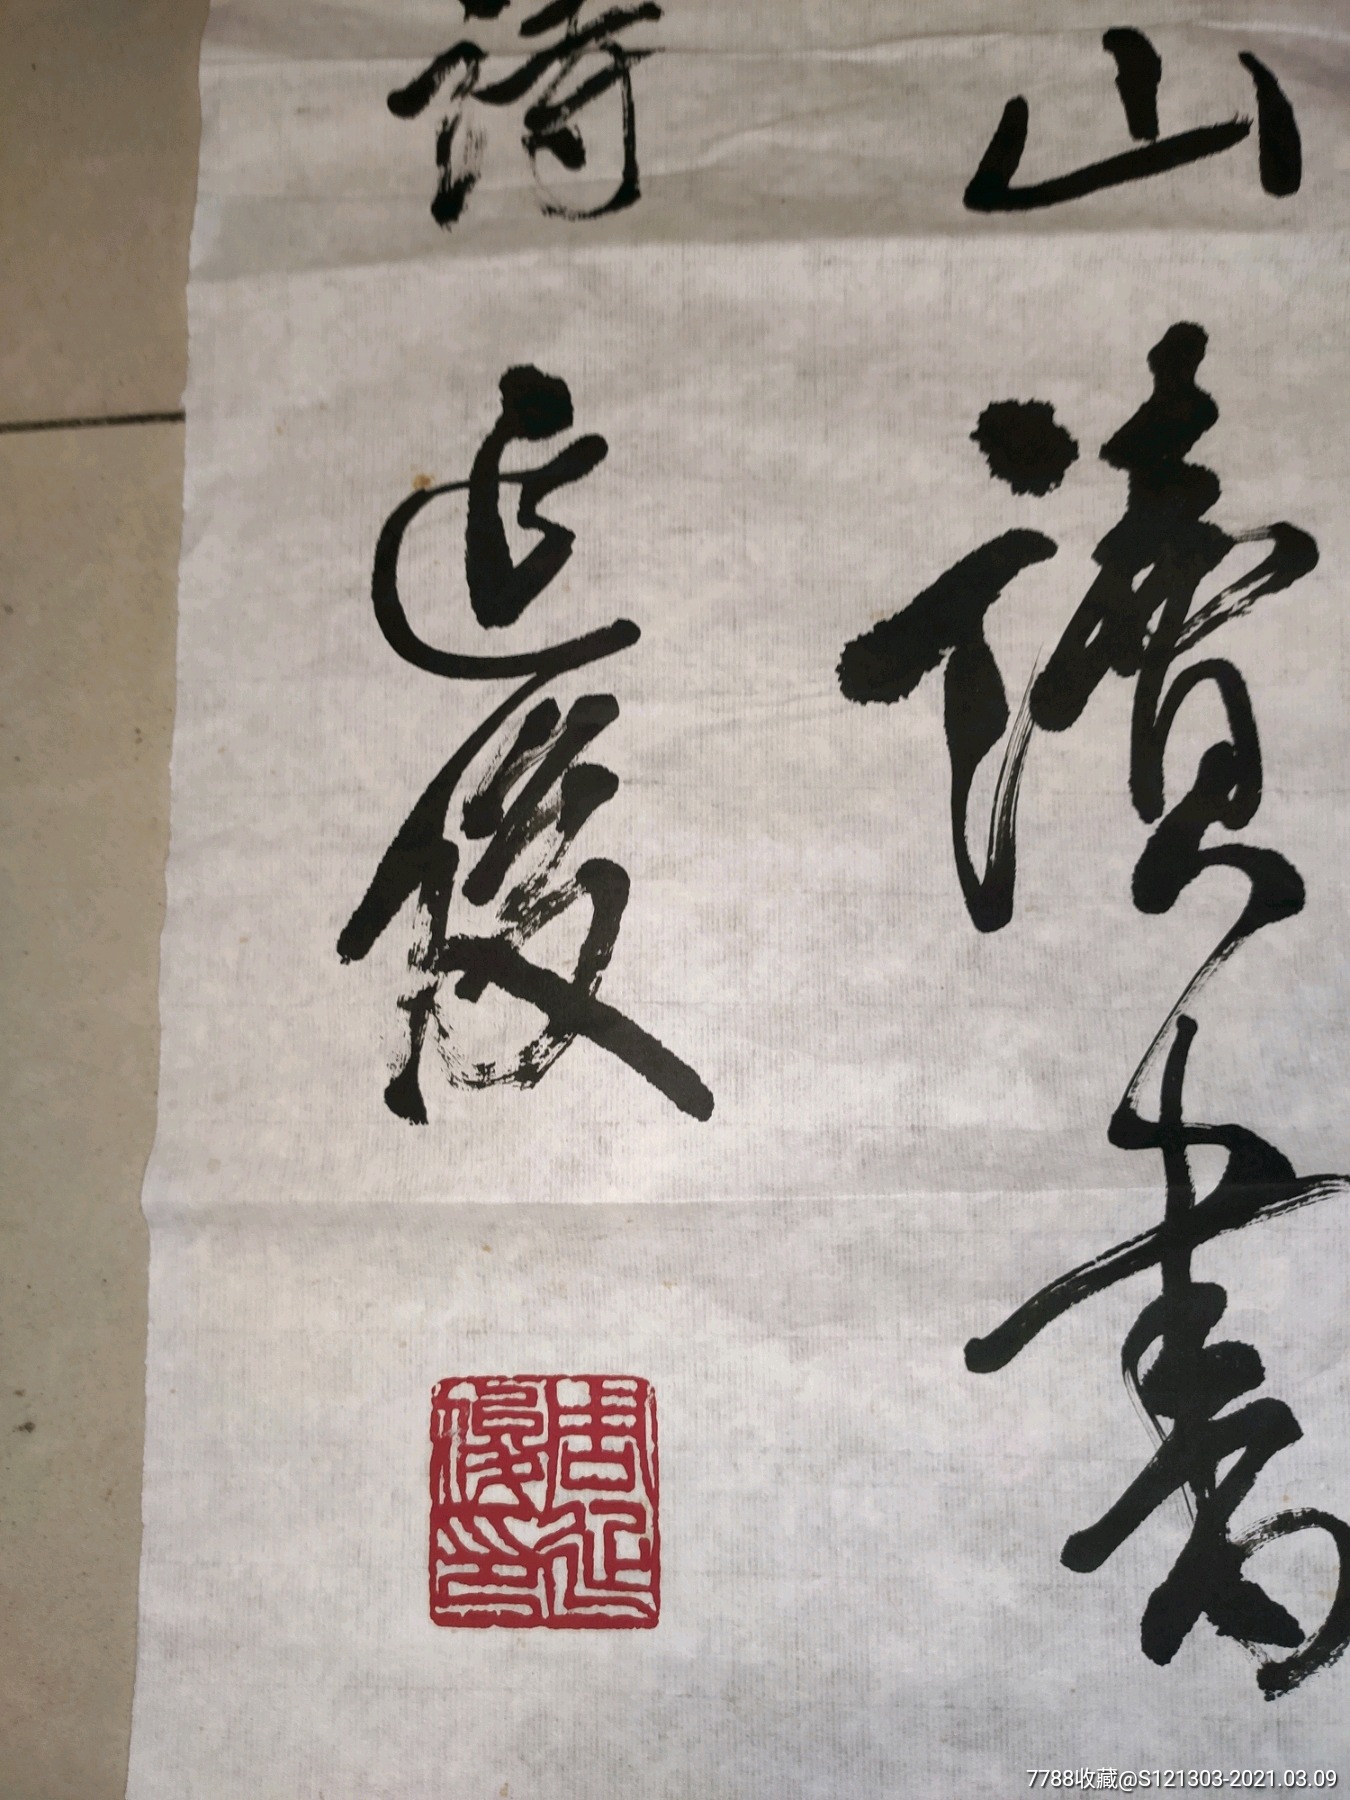 山讀書處
詩 延俊
周延俊印
7788收藏@S121303-2021.03.09